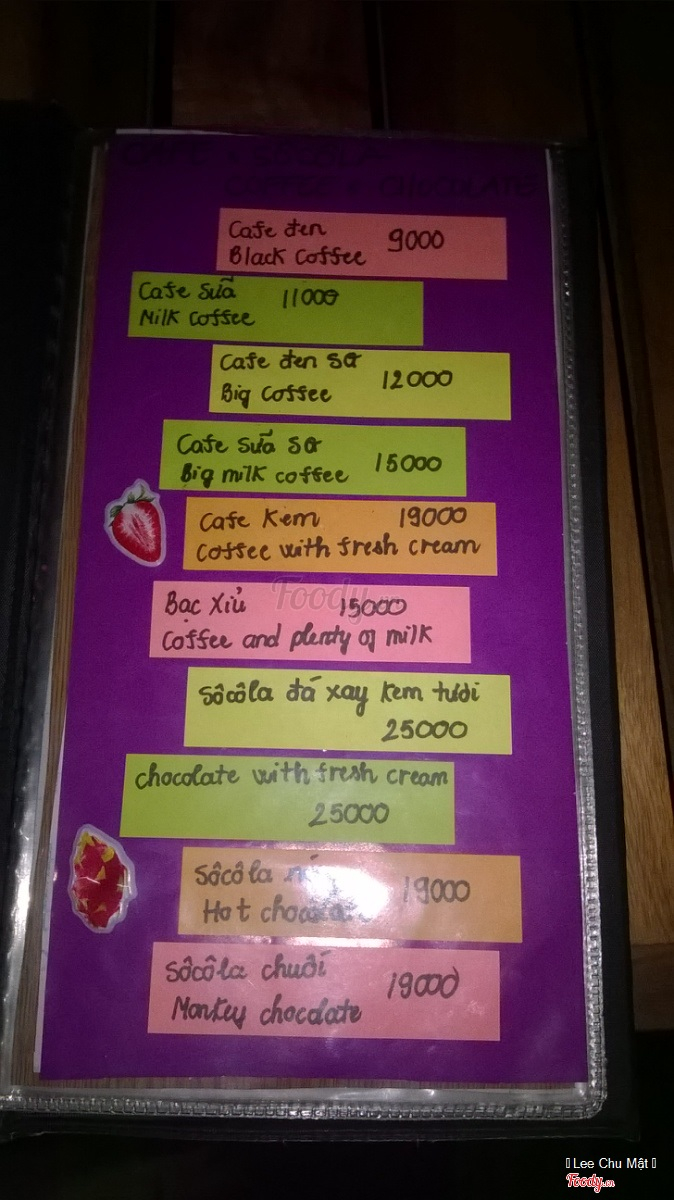 CAFE + SÔCÔLA
COFFEE + CHOCOLATE
Cafe đen 9000
Black Coffee
Cafe Sữa 11000
Milk Coffee
Cafe đen SG 12000
Big Coffee
Cafe Sữa SG 15000
Big milk coffee
Cafe Kem 19000
Coffee with fresh cream
Foody.vn
Bạc Xỉu 15000
Coffee and plenty of milk
Sôcôla đá xay Kem tươi
25000
chocolate with fresh cream
25000
Sôcôla 19000
Hot chocolate
Sôcôla chuối 19000
Monkey chocolate
Lee Chu Mật
Foody.vn